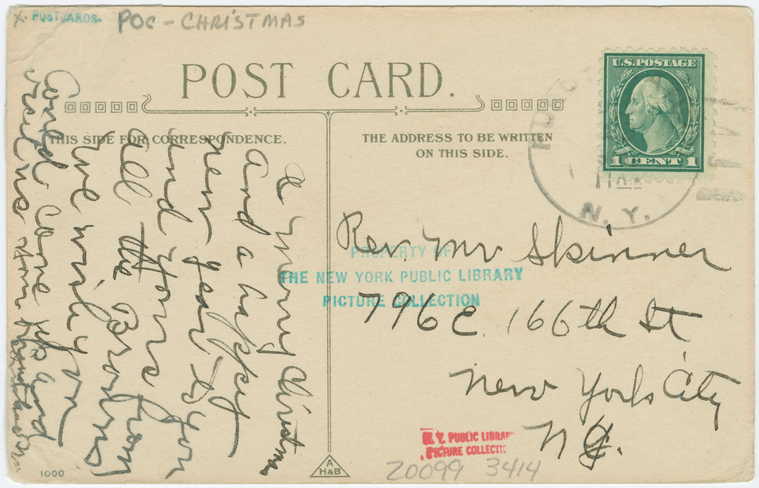 X POSTCARDS. POC - CHRISTMAS
POST CARD.
THIS SIDE FOR CORRESPONDENCE.
THE ADDRESS TO BE WRITTEN
ON THIS SIDE.
U.S. POSTAGE
1 CENT 1
N. Y.
a Merry Christmas
and a happy
new year to you
and yours from
all the Browns
we wish you
Could come up and
see us
Rev. Mr Skinner
796 E. 166th St
New York City
N.Y.
PROPERTY OF
THE NEW YORK PUBLIC LIBRARY
PICTURE COLLECTION
N. Y. PUBLIC LIBRARY
PICTURE COLLECTION
Z0099 3414
1000
A
H&B